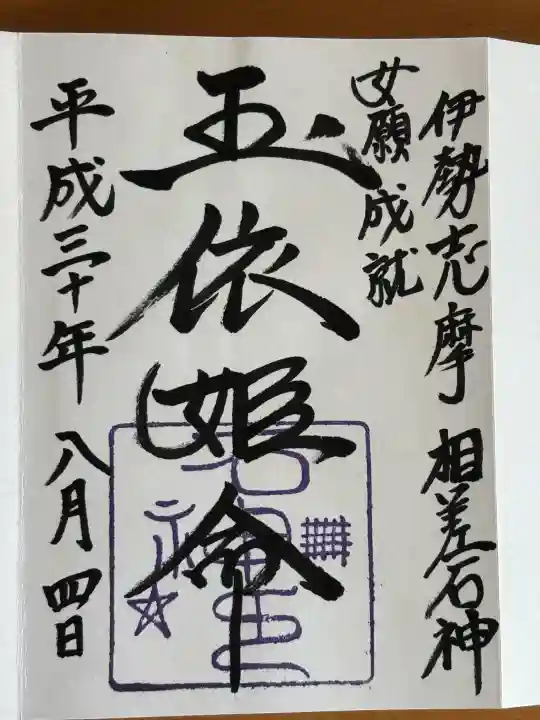 伊勢志摩 相差石神
女願成就
玉依姫命
平成三十年 八月 四日